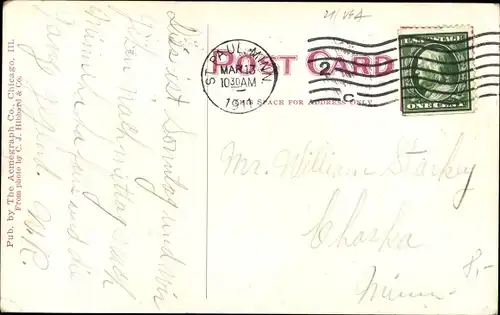 21/VGA
POST CARD
THIS SPACE FOR ADDRESS ONLY
ST. PAUL, MINN.
MAR 13
10 30 AM
1911
2
C
U.S. POSTAGE
ONE CENT
Mr. William Starkey
Chaska
Minn.
8,-
Dies ist Sonntag und wir
nachmittag nach
und die
W.R.
Pub. by The Acmegraph Co., Chicago, Ill.
From photo by C. J. Hibbard & Co.